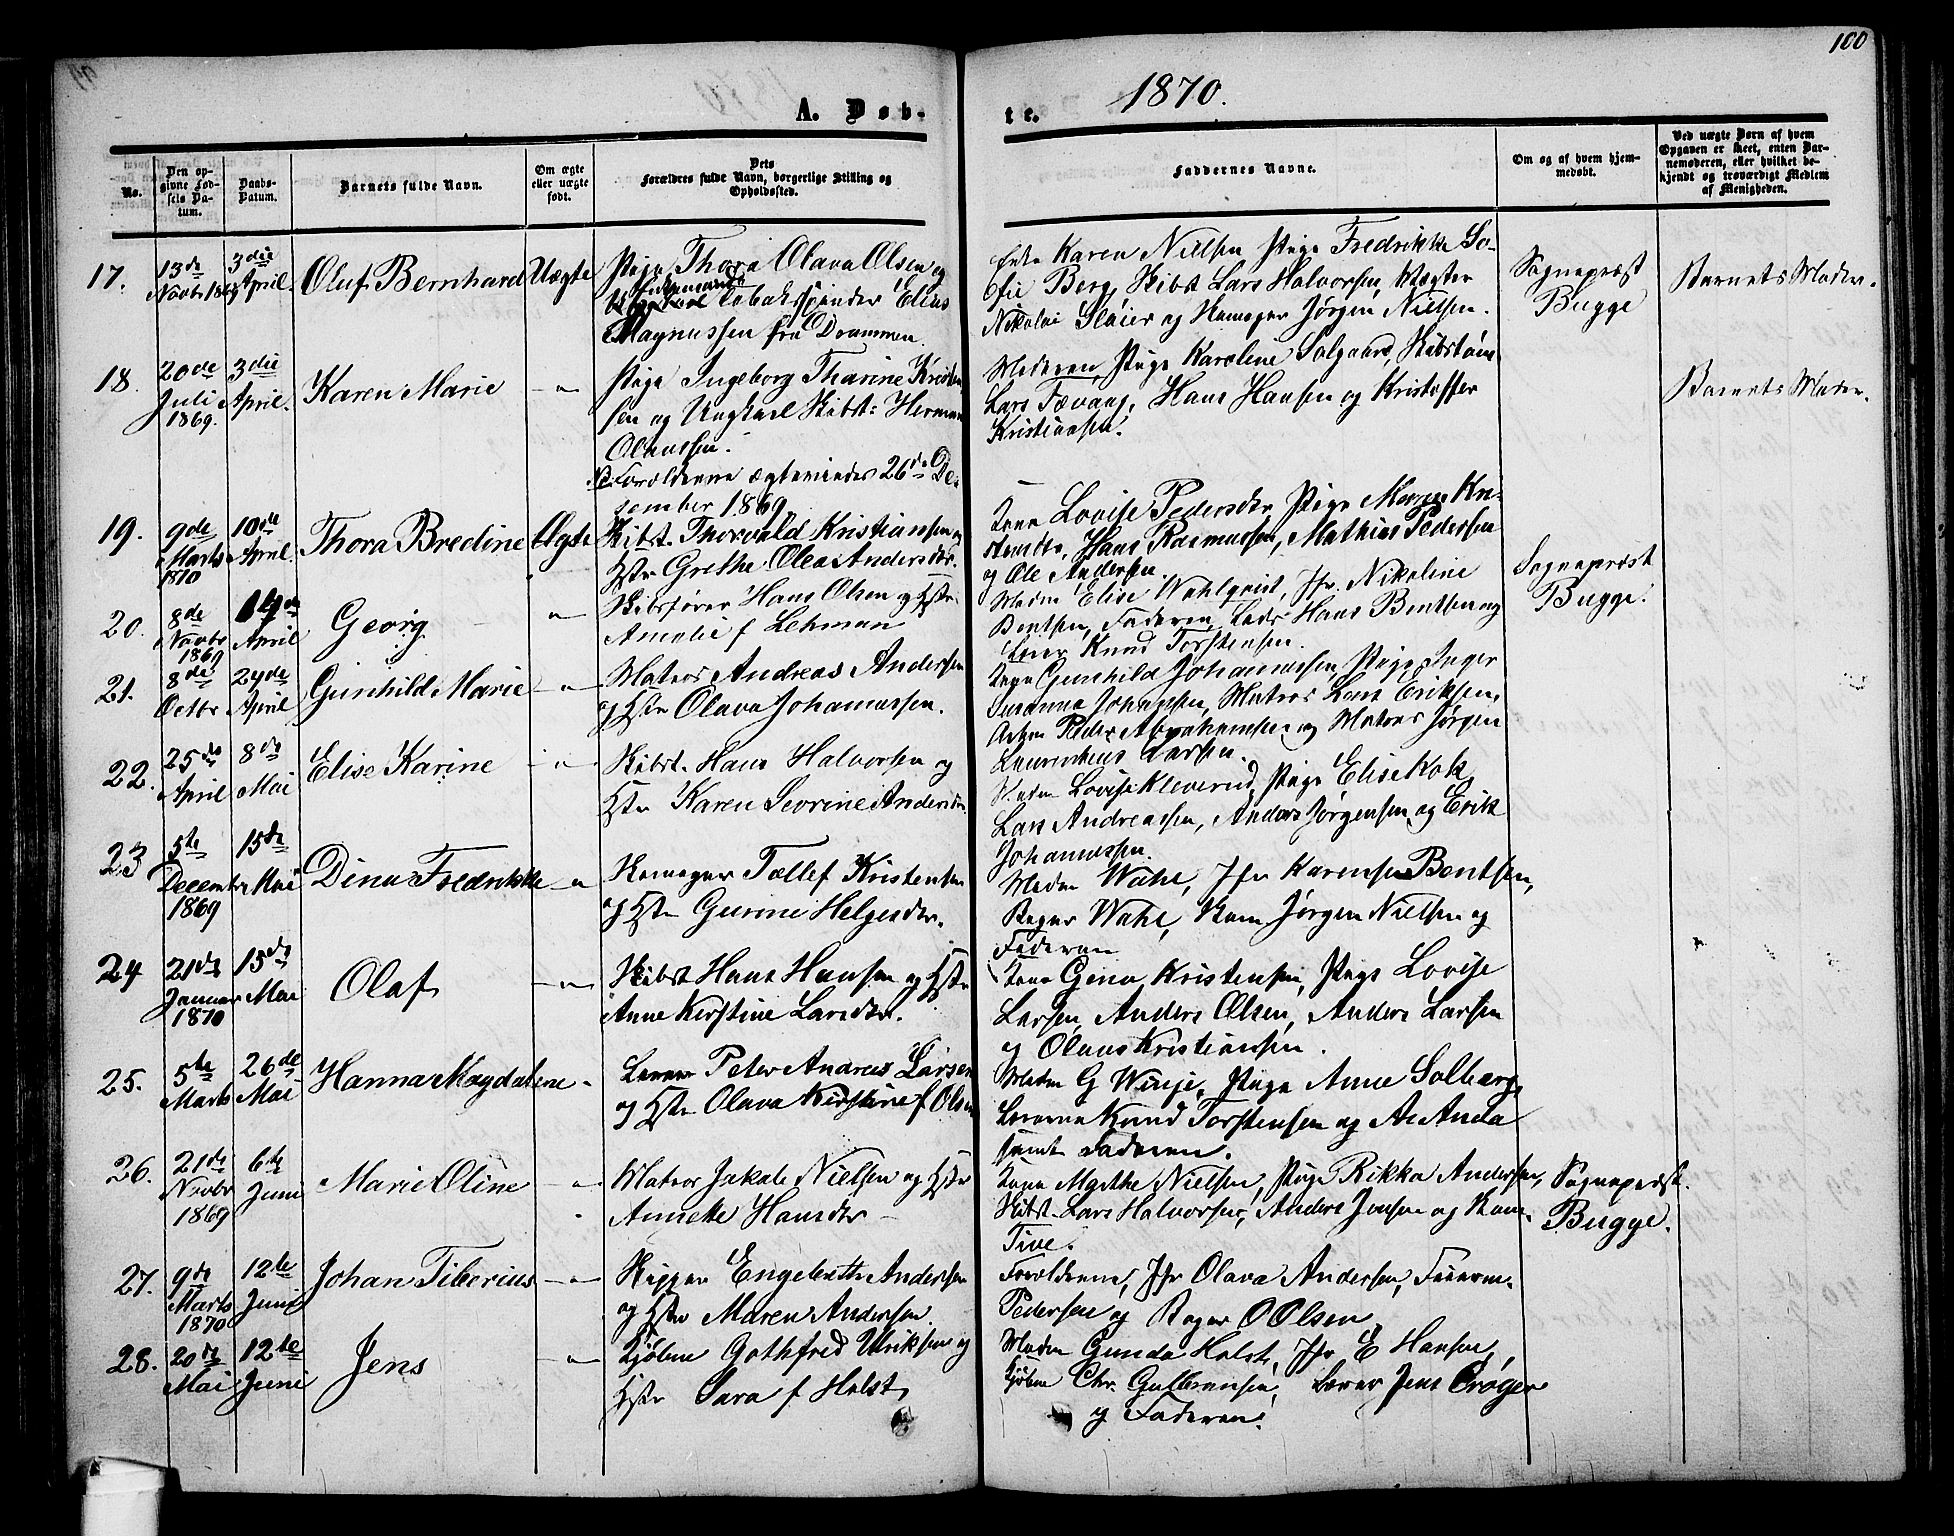 100
1870.
A. Døb-
te.
No.
Den op-
givne Fød-
sels Da-
tum.
Daabs-
Datum.
Barnets fulde Navn.
Om ægte
eller uægte
født.
Dets
Forældres fulde Navn, borgerlige Stilling og
Opholdssted.
Faddernes Navne.
Om og af hvem hjem-
medøbt.
Ved uægte Børn af hvem
Opgaven er skeet, enten Bar-
nemoderen, eller hvilket be-
kjendt og troværdigt Medlem
af Menigheden.
17.
13de
Novbr 1869
3die
April.
Oluf Bernhard
Uægte
Pige Thora Olava Olsen og
Tobakspinder Elius
Magnussen fra Drammen.
Enke Karen Nielsen Pige Fredrikke So-
fie Berg, Skibst Lars Halvorsen, Vægter
Nikolai Slaier og Kemager Jørgen Nielsen.
Sognepræst
Bugge
Barnets Moder.
18.
20de
Juli
1869.
3die
April.
Karen Marie
-"-
Pige Ingeborg Tharine Kristen
sen og Ungkarl Skibst: Herman
Olaussen.
NB. Forældrene ægteviedes 26de De-
sember 1869
Moderen, Pige Karoline Solgaard, Skibstøm
Lars Tævang, Hans Hansen og Kristoffer
Kristiansen.
Barnets Moder.
19.
9de
Marts
1870
10de
April.
Thora Bredine
Ægte
Skibst. Thorvald Kristiansen og
Hstr Grethe Olea Andersdtr.
Kone Lovise Pedersdtr Pige Maren Kri-
stensdtr, Hans Rasmussen, Mathias Pedersen
og Ole Andersen.
20.
8de
Novbr
1869
14de
April
Georg
-"-
Skibsfører Hans Olsen og Hstr.
Amalie f Lehman
Madm Elise Wahlqvist, Jfr. Nikoline
Bentsen, Faderen, Lods Hans Bentsen og
Lærer Knud Torstensen.
Sognepræst
Bugge.
21.
8de
Octbr
24de
April
Gunhild Marie
-"-
Matros Andreas Andersen
og Hstr Olava Johannessen.
Kone Gunhild Johannessen, Pige Inger
Susanne Johansen, Matros Lars Eriksen,
Peder Abrahamsen og Matros Jørgen
Laurentius Larsen.
22.
25de
April
8de
Mai
Elise Karine
-"-
Skibst. Hans Halvorsen og
Hstr Karen Sevrine Andersdtr
Madm Lovise Kleverud, Pige Elise Kok,
Lars Andreassen, Anders Jørgensen og Erik
Johannessen.
23
5te
Decembr
1869
15de
Mai
Dina Fredrikke
-"
Kemager Tollef Kristensen
og Hstr Gurine Helgesdtr.
Madm Wahl, Jfr Karense Bentsen,
Bager Wahl, Kem Jørgen Nielsen og
Faderen
24
21de
Januar
1870
15de
Mai
Olaf
-"-
Skibst Hans Hansen og Hstr
Anne Kirstine Larsdtr.
Kone Gina Kristensen, Pige Lovise
Larsen, Anders Olsen, Anders Larsen
og Olaus Kristiansen.
25.
5te
Marts
26de
Mai
Hanna Magdalene
-
Lærer Peter Andreas Larsen
og Hstr Olava Kirstine f Olsen
Madm G Winje, Pige Anne Solberg,
Lærerne Knud Torstensen og An Anda
samt Faderen.
26.
21de
Novbr
1869
6te
Juni
Marie Oline
-"
Matros Jakob Nielsen og Hstr
Annette Hansdtr -
Kone Marthe Nielsen, Pige Rikka Andersen,
Skibst. Lars Halvorsen, Anders Jensen og Kem.
Tive.
Sognepræst.
Bugge.
27.
9de
Marts
1870
12te
Juni
Johan Tiberius
-"-
Skipper Engebreth Andersen
og Hstr Maren Andersen.
Forældrene, Jfr Olava Andersen,
Pedersen og Bager O Olsen
28.
20de
Mai
12te
Juni
Jens
-"-
Kjøbm Gothfred Ulriksen og
Hstr Sara f Holst
Madm Gunda Holst, Jfr E Hansen,
Kjøbm Chr. Gulbransen, Lærer Jens Crøger
og Faderen.